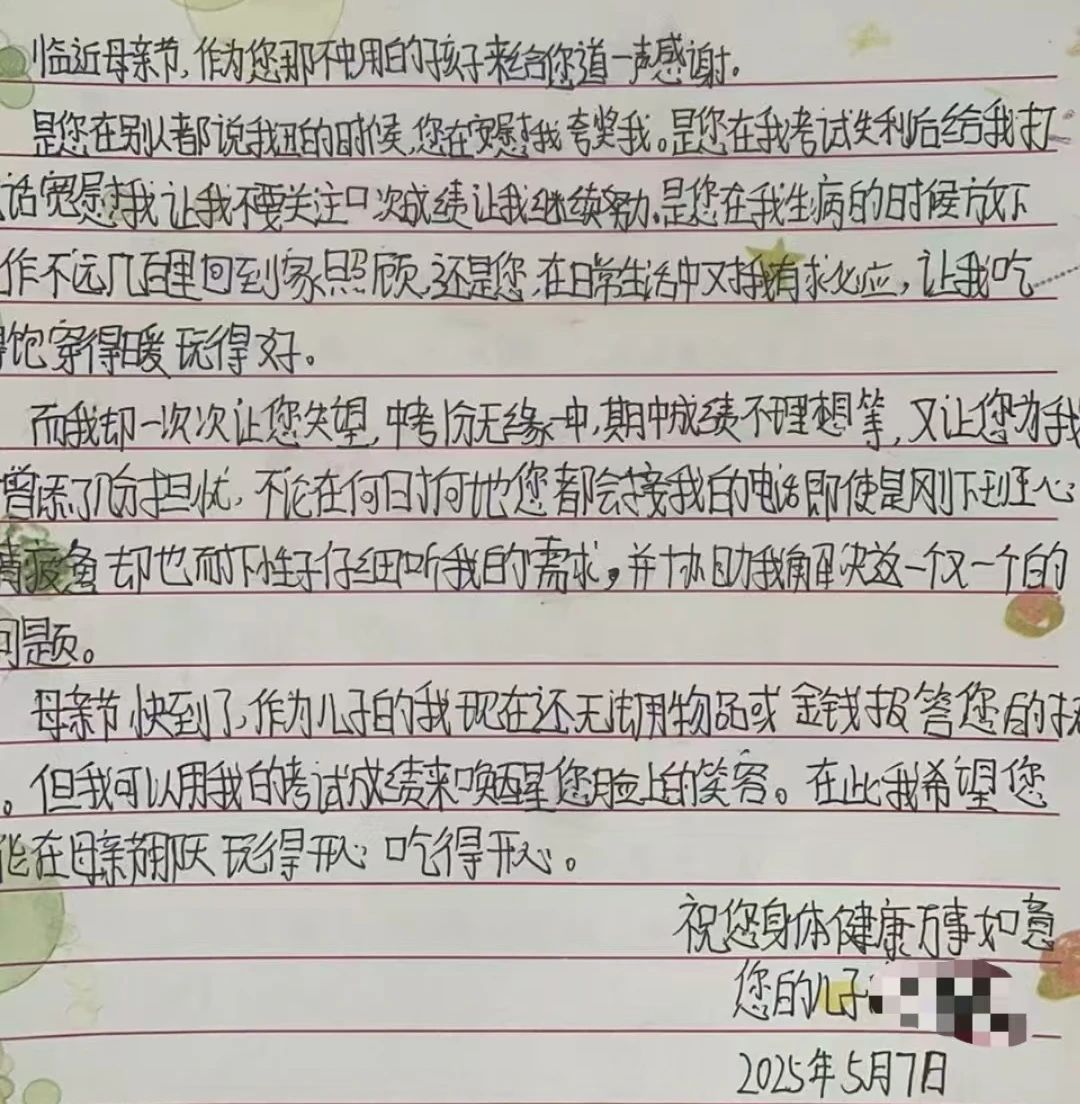 临近母亲节,作为您那不中用的孩子来给您道一声感谢。
是您在别人都说我丑的时候,您在安慰我夸奖我。是您在我考试失利后给我打
话宽慰我让我不要关注口次成绩让我继续努力。是您在我生病的时候放下
作不远几百里回到家照顾,还是您,在日常生活中对我有求必应,让我吃
得饱穿得暖玩得好。
而我却一次次让您失望,中考份无缘一中,期中成绩不理想等,又让您为我
增添了几分担忧,不论在何时何地您都会接我的电话即使是刚下到班心
情疲惫却也耐下性子仔细听我的需求,并协助我解决这一个又一个的
问题。
母亲节快到了,作为儿子的我现在还无法用物品或金钱报答您的抚
。但我可以用我的考试成绩来唤醒您脸上的笑容。在此我希望您
能在母亲节那天玩得开心吃得开心。
祝您身体健康万事如意
您的儿子
2025年5月7日